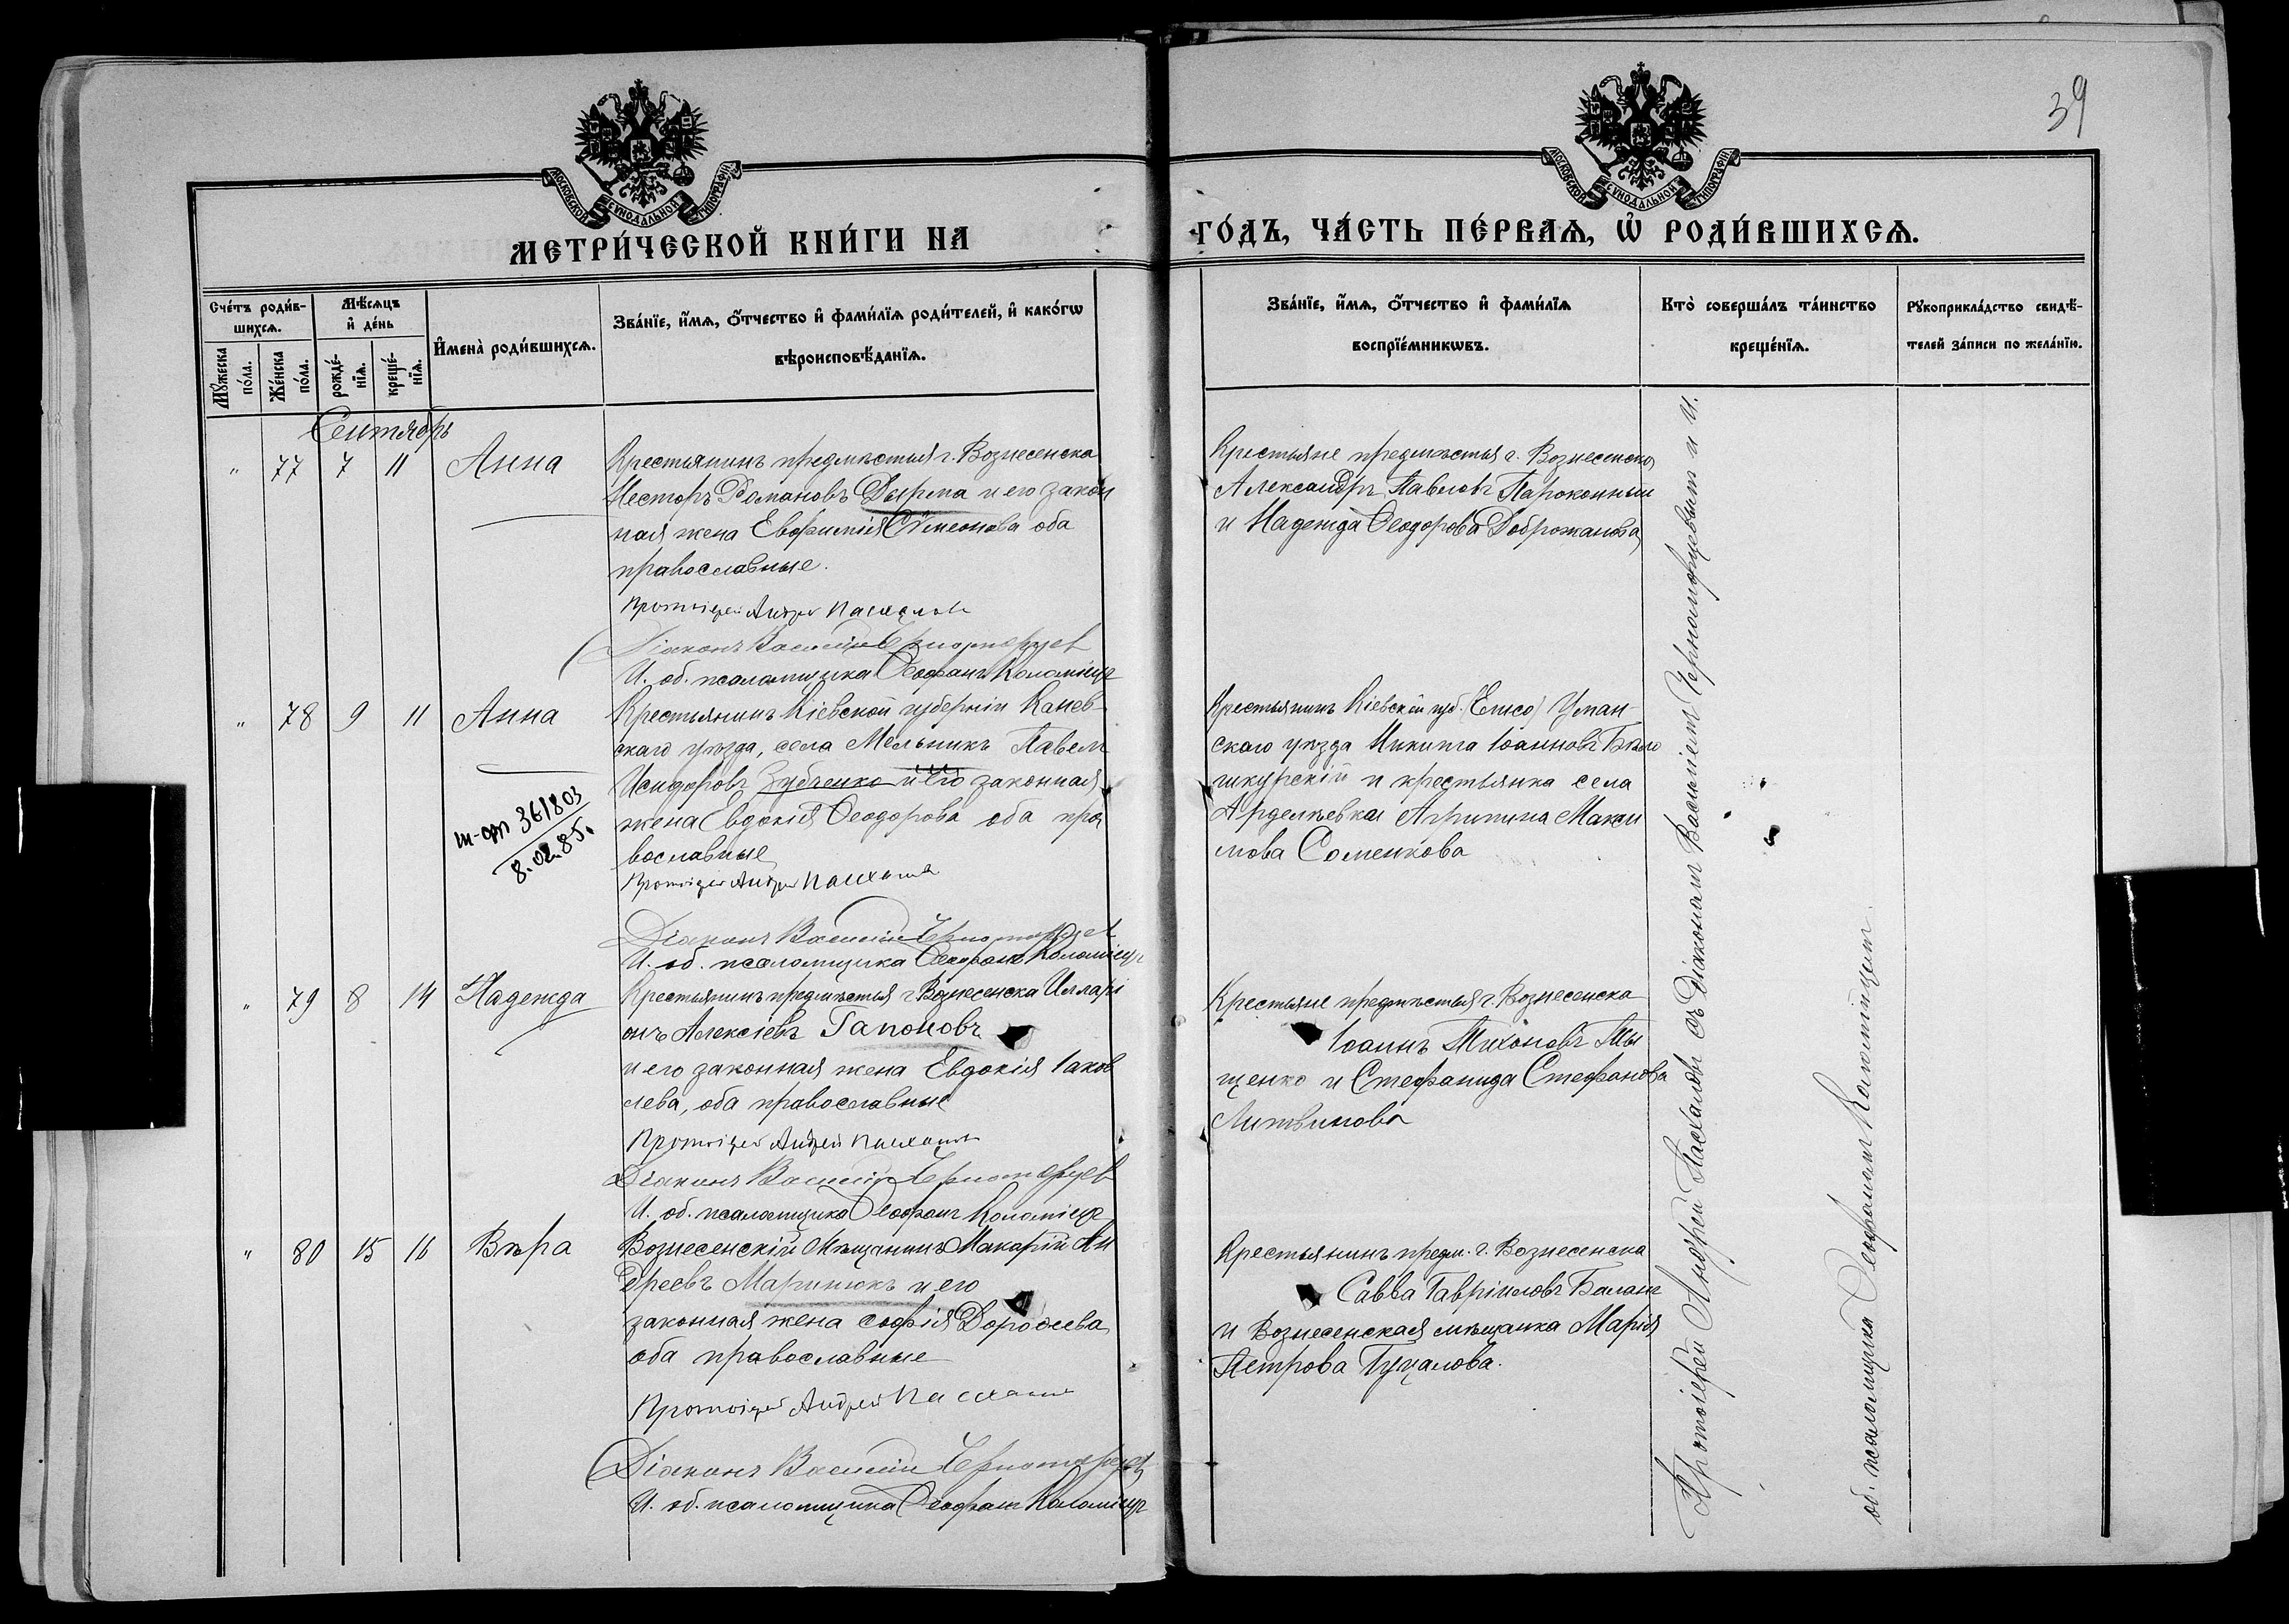 39
МОСКОВСКОЙ СѴНОДАЛЬНОЙ ТИПОГРАФІИ
МОСКОВСКОЙ СѴНОДАЛЬНОЙ ТИПОГРАФІИ
МЕТРИ́ЧЕСКОЙ КНИ́ГИ НА
ГО́ДЪ, ЧА́СТЬ ПЕ́РВАѦ, Ѽ РОДИ́ВШИХСѦ.
Сче́тъ роди́в-
шихсѧ.
Мꙋ́жеска
по́ла.
Же́нска
по́ла.
Мѣ́сѧцъ
и҆ де́нь
рожде́-
нїѧ.
креще́-
нїѧ.
И҆мена̀ роди́вшихсѧ.
Зва́нїе, и҆́мѧ, ѻ҆́тчество и҆ фами́лїѧ роди́телей, и҆ како́гѡ
вѣроисповѣ́данїѧ.
Зва́нїе, и҆́мѧ, ѻ҆́тчество и҆ фами́лїѧ
воспрїе́мникѡвъ.
Кто̀ соверша́лъ та́инство
креще́нїѧ.
Рꙋкоприкла́дство свидѣ́-
телей за́писи по жела́нїю.
Сентябрь
" 77 7 11 Анна
Крестьянинъ предмѣстья г. Вознесенска
Несторъ Романовъ Дырма и его закон
ная жена Евфимія Сѵмеонова оба
православные.
Протоіерей Андрей Пасхаловъ
Діаконъ Василій Черноморцев
И. об. псаломщика Ѳеофанъ Коломіецъ
Крестьяне предмѣстья г. Вознесенска
Александръ Павловъ Пароконный
и Надежда Ѳеодорова Доброжанова
" 78 9 11 Анна
т-ст 36/803
8.02.85.
Крестьянинъ Кіевской губерніи Канев
скаго уѣзда, села Мельникъ Павелъ
Исидоровъ Зубченко и его законная
жена Евдокія Ѳеодорова оба пра
вославные
Протоіерей Андрей Пасхаловъ
Діаконъ Василій Черноморцев
И. об. псаломщика Ѳеофанъ Коломіецъ
Крестьянинъ Кіевской губ. Уман
скаго уѣзда Никита Іоанновъ Бѣло
шкурскій и крестьянка села
Арделѣевки Агрипина Макси
мова Соменкова
" 79 8 14 Надежда
Крестьянинъ предмѣстья г. Вознесенска Иллари
онъ Алексіевъ Гапоновъ
и его законная жена Евдокія Іаков
лева, оба православные
Протоіерей Андрей Пасхаловъ
Діаконъ Василій Черноморцев
И. об. псаломщика Ѳеофанъ Коломіецъ
Крестьяне предмѣстья г. Вознесенска
Іоаннъ Тихоновъ Ты
щенко и Стефанида Стефанова
Литвинова
" 80 15 16 Вѣра
Вознесенскій Мѣщанинъ Макарій Ан
дреевъ Маринюкъ и его
законная жена Софія Дороѳеева
оба православные
Протоіерей Андрей Пасхаловъ
Діаконъ Василій Черноморцев
И. об. псаломщика Ѳеофанъ Коломіецъ
Крестьянинъ предм. г. Вознесенска
Савва Гавріиловъ Баланъ
и Вознесенская мѣщанка Марія
Петрова Гуцалова.
Протоіерей Андрей Пасхаловъ съ Діакономъ Василіемъ Черноморцевымъ и и.
об. псаломщика Ѳеофаномъ Коломійцемъ.